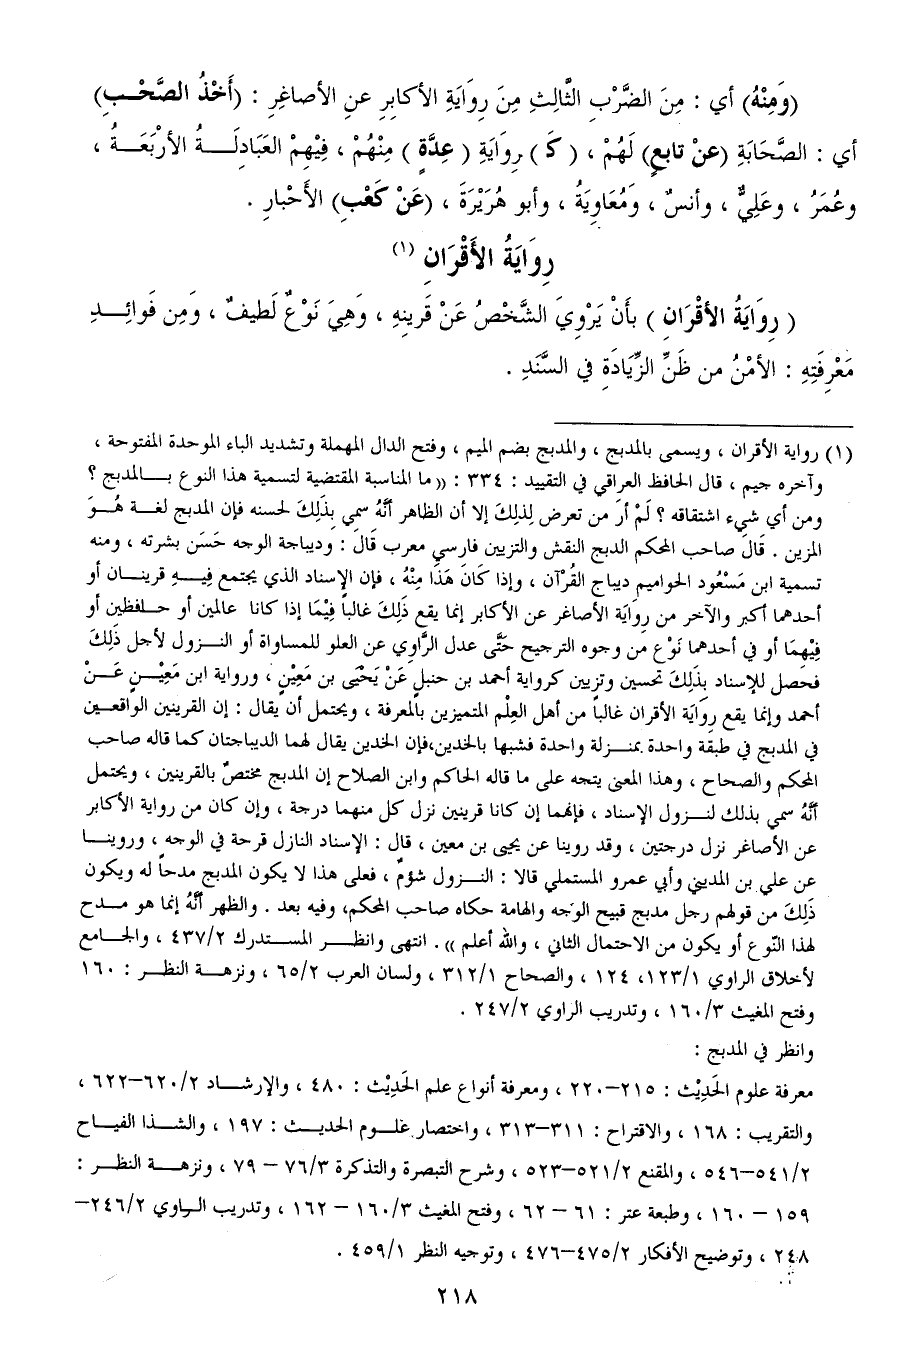 (وَمِنْهُ) أي : مِنَ الضَّرْبِ الثَّالِثِ مِنَ رِوَايَةِ الأكابِرِ عنِ الأصاغرِ : (أَخْذُ الصَّحْبِ)
أي : الصَّحَابَةِ (عنْ تابعٍ) لَهُمْ ، ( كَـ ) رِوَايَةِ ( عِدَّةٍ ) مِنْهُمْ ، فِيْهِمْ العَبَادِلَةُ الأرْبَعَةُ ،
وعُمَرُ ، وعَلِيٌّ ، وأنسٌ ، ومُعَاوِيَةُ ، وأبو هُرَيْرَةَ ، (عَنْ كَعْبِ) الأَحْبارِ .
رِوَايَةُ الأَقْرَانِ (١)
( رِوَايَةُ الأَقْرَانِ ) بأَنْ يَرْوِيَ الشَّخْصُ عَنْ قَرِينِهِ ، وَهِيَ نَوْعٌ لَطِيفٌ ، وَمِن فَوائِدِ
مَعْرِفَتِهِ : الأمْنُ من ظَنِّ الزِّيَادَةِ في السَّنَدِ .
(١) رواية الأقران ، ويسمى بالمدبج ، والمدبج بضم الميم ، وفتح الدال المهملة وتشديد الباء الموحدة المفتوحة ،
وآخره جيم ، قال الحافظ العراقي في التقييد : ٣٣٤ : (( ما المناسبة المقتضية لتسمية هذا النوع بالمدبج ؟
ومن أي شيء اشتقاقه ؟ لَمْ أرَ من تعرض لِذلِكَ إلا أن الظاهر أنَّهُ سمي بِذَلِكَ لحسنه فإن المدبج لغة هُوَ
المزين . قَالَ صاحب المحكم الدبج النقش والتزيين فارسي معرب قَالَ : وديباجة الوجه حَسَن بشرته ، ومنه
تسمية ابن مَسْعُود الحواميم ديباج القُرْآن ، وإذا كَانَ هَذَا مِنْهُ ، فإن الإسناد الذي يجتمع فِيهِ قرينان أو
أحدهما أكبر والآخر من رِوَايَة الأصاغر عن الأكابر إنما يقع ذَلِكَ غالباً فِيْمَا إذا كانا عالمين أو حافظين أو
فِيْهِمَا أو في أحدهما نَوْع من وجوه الترجيح حَتَّى عدل الرَّاوِي عن العلو للمساواة أو النزول لأجل ذَلِكَ
فحصل للإسناد بِذَلِكَ تحسين وتزيين كرواية أحمد بن حنبل عَنْ يَحْيَى بن مَعِيْنٍ ، ورواية ابن مَعِيْنٍ عَنْ
أحمد وإنما يقع رِوَايَة الأقران غالباً من أهل العِلْم المتميزين بالمعرفة ، ويحتمل أن يقال : إن القرينين الواقعين
في المدبج في طبقة واحدة بمنزلة واحدة فشبها بالخدين،فإن الخدين يقال لهما الديباجتان كما قاله صاحب
المحكم والصحاح ، وهذا المعنى يتجه على ما قاله الحاكم وابن الصلاح إن المدبج مختصٌ بالقرينين ، ويحتمل
أنَّهُ سمي بذلك لنزول الإسناد ، فإنهما إن كانا قرينين نزل كل منهما درجة ، وإن كان من رواية الأكابر
عن الأصاغر نزل درجتين ، وقد روينا عن يحيى بن معين ، قال : الإسناد النازل قرحة في الوجه ، وروينا
عن علي بن المديني وأبي عمرو المستملي قالا : النزول شؤمٌ ، فعلى هذا لا يكون المدبج مدحاً له ويكون
ذَلِكَ من قولهم رجل مدبج قبيح الوجه والهامة حكاه صاحب المحكم، وفيه بعد . والظهر أنَّهُ إنما هو مدح
لهذا النّوع أو يكون من الاحتمال الثاني ، والله أعلم )) . انتهى وانظر المستدرك ٤٣٧/٢ ، والجامع
لأخلاق الراوي ١٢٣/١، ١٢٤ ، والصحاح ٣١٢/١ ، ولسان العرب ٦٥/٢ ، ونزهة النظر : ١٦٠
وفتح المغيث ١٦٠/٣ ، وتدريب الراوي ٢٤٧/٢ .
وانظر في المدبج :
معرفة علوم الحَدِيْث : ٢١٥–٢٢٠ ، ومعرفة أنواع علم الحَدِيْث : ٤٨٠ ، والإرشاد ٦٢٠/٢–٦٢٢ ،
والتقريب : ١٦٨ ، والاقتراح : ٣١١–٣١٣ ، واختصار علوم الحديث : ١٩٧ ، والشذا الفياح
٥٤١/٢–٥٤٦ ، والمقنع ٥٢١/٢–٥٢٣ ، وشرح التبصرة والتذكرة ٧٦/٣ – ٧٩ ، ونزهة النظر :
١٥٩ – ١٦٠ ، وطبعة عتر : ٦١ – ٦٢ ، وفتح المغيث ١٦٠/٣ – ١٦٢ ، وتدريب الراوي ٢٤٦/٢–
٢٤٨ ، وتوضيح الأفكار ٤٧٥/٢–٤٧٦ ، وتوجيه النظر ٤٥٩/١ .
٢١٨